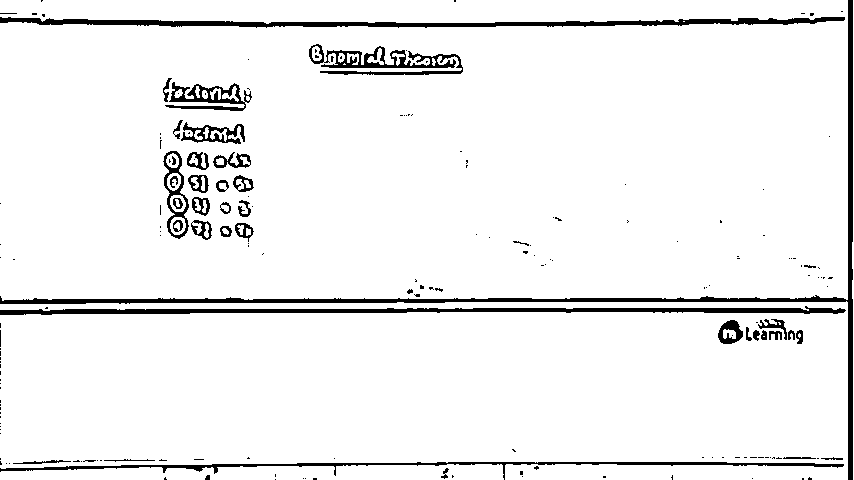 Binomial Theorem
factorial :
factorial
① 4! = 4x
② 5! = 5x
③ 3! = 3
④ 7! = 7x
Learning